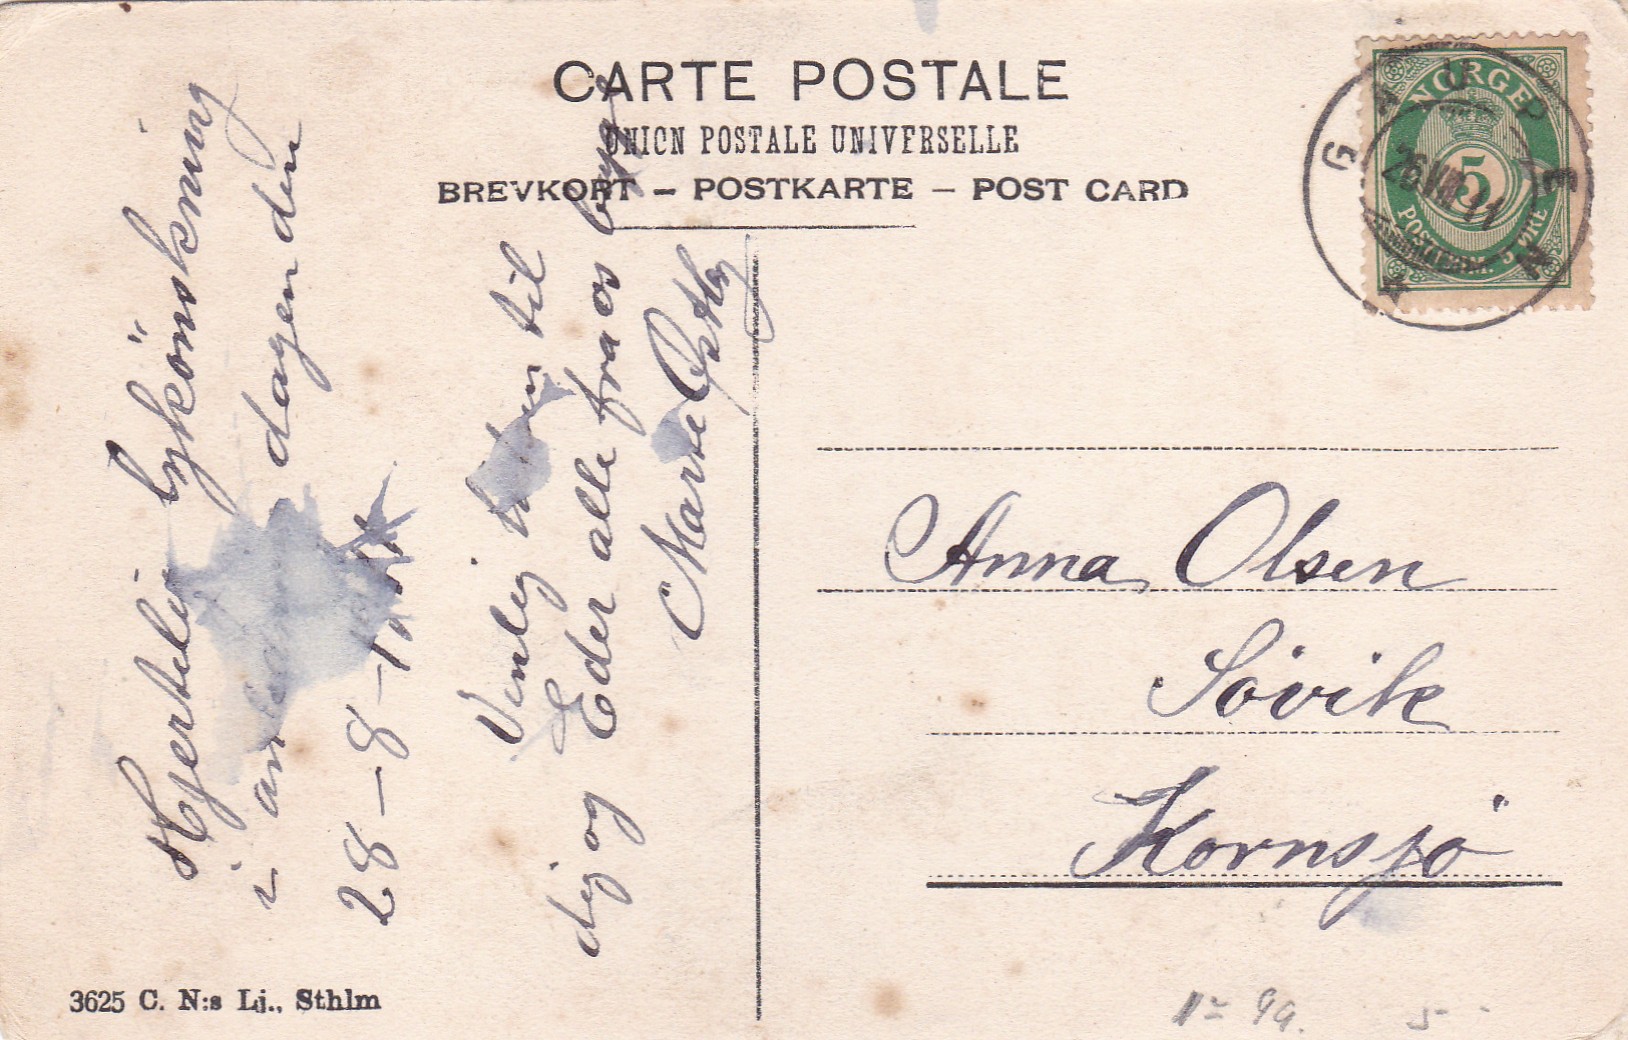 CARTE POSTALE
UNION POSTALE UNIVERSELLE
BREVKORT – POSTKARTE – POST CARD
NORGE
5
POSTFRIM. 5 ØRE
26 VIII 11
Hjertelig lykönskning
i anledning dagen den
28 – 8 – 1911
Venlig hilsen til
dig og Eder alle fra os
Marte
Anna Olsen
Sövik
Kornsjö
3625 C. N:s Lj., Sthlm